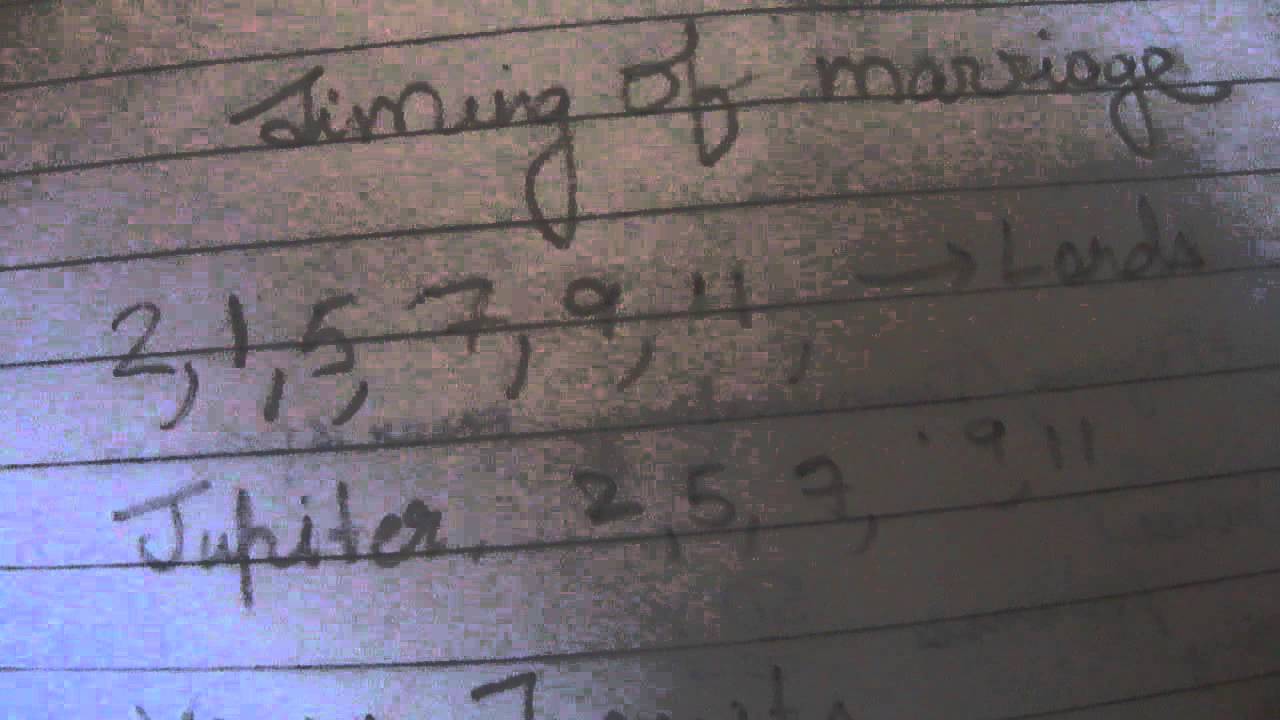 Timing Of marriage
2, 1, 5, 7, 9, 11, → Lords
Jupiter 2, 5, 7, 9, 11
7